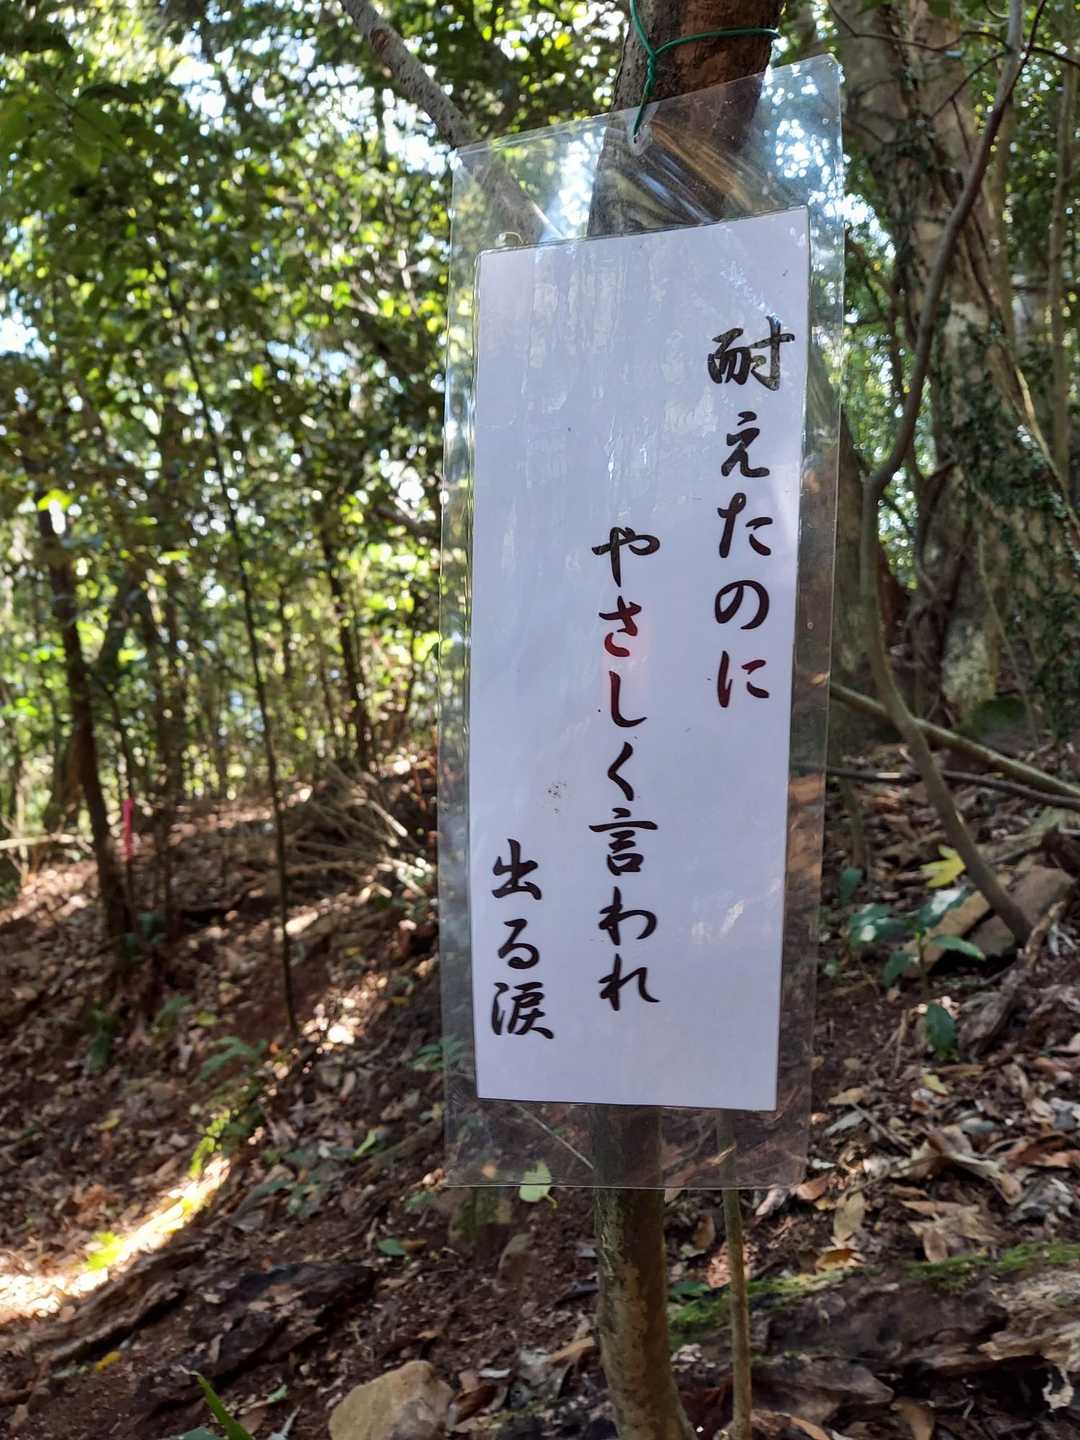 耐えたのに
やさしく言われ
出る涙